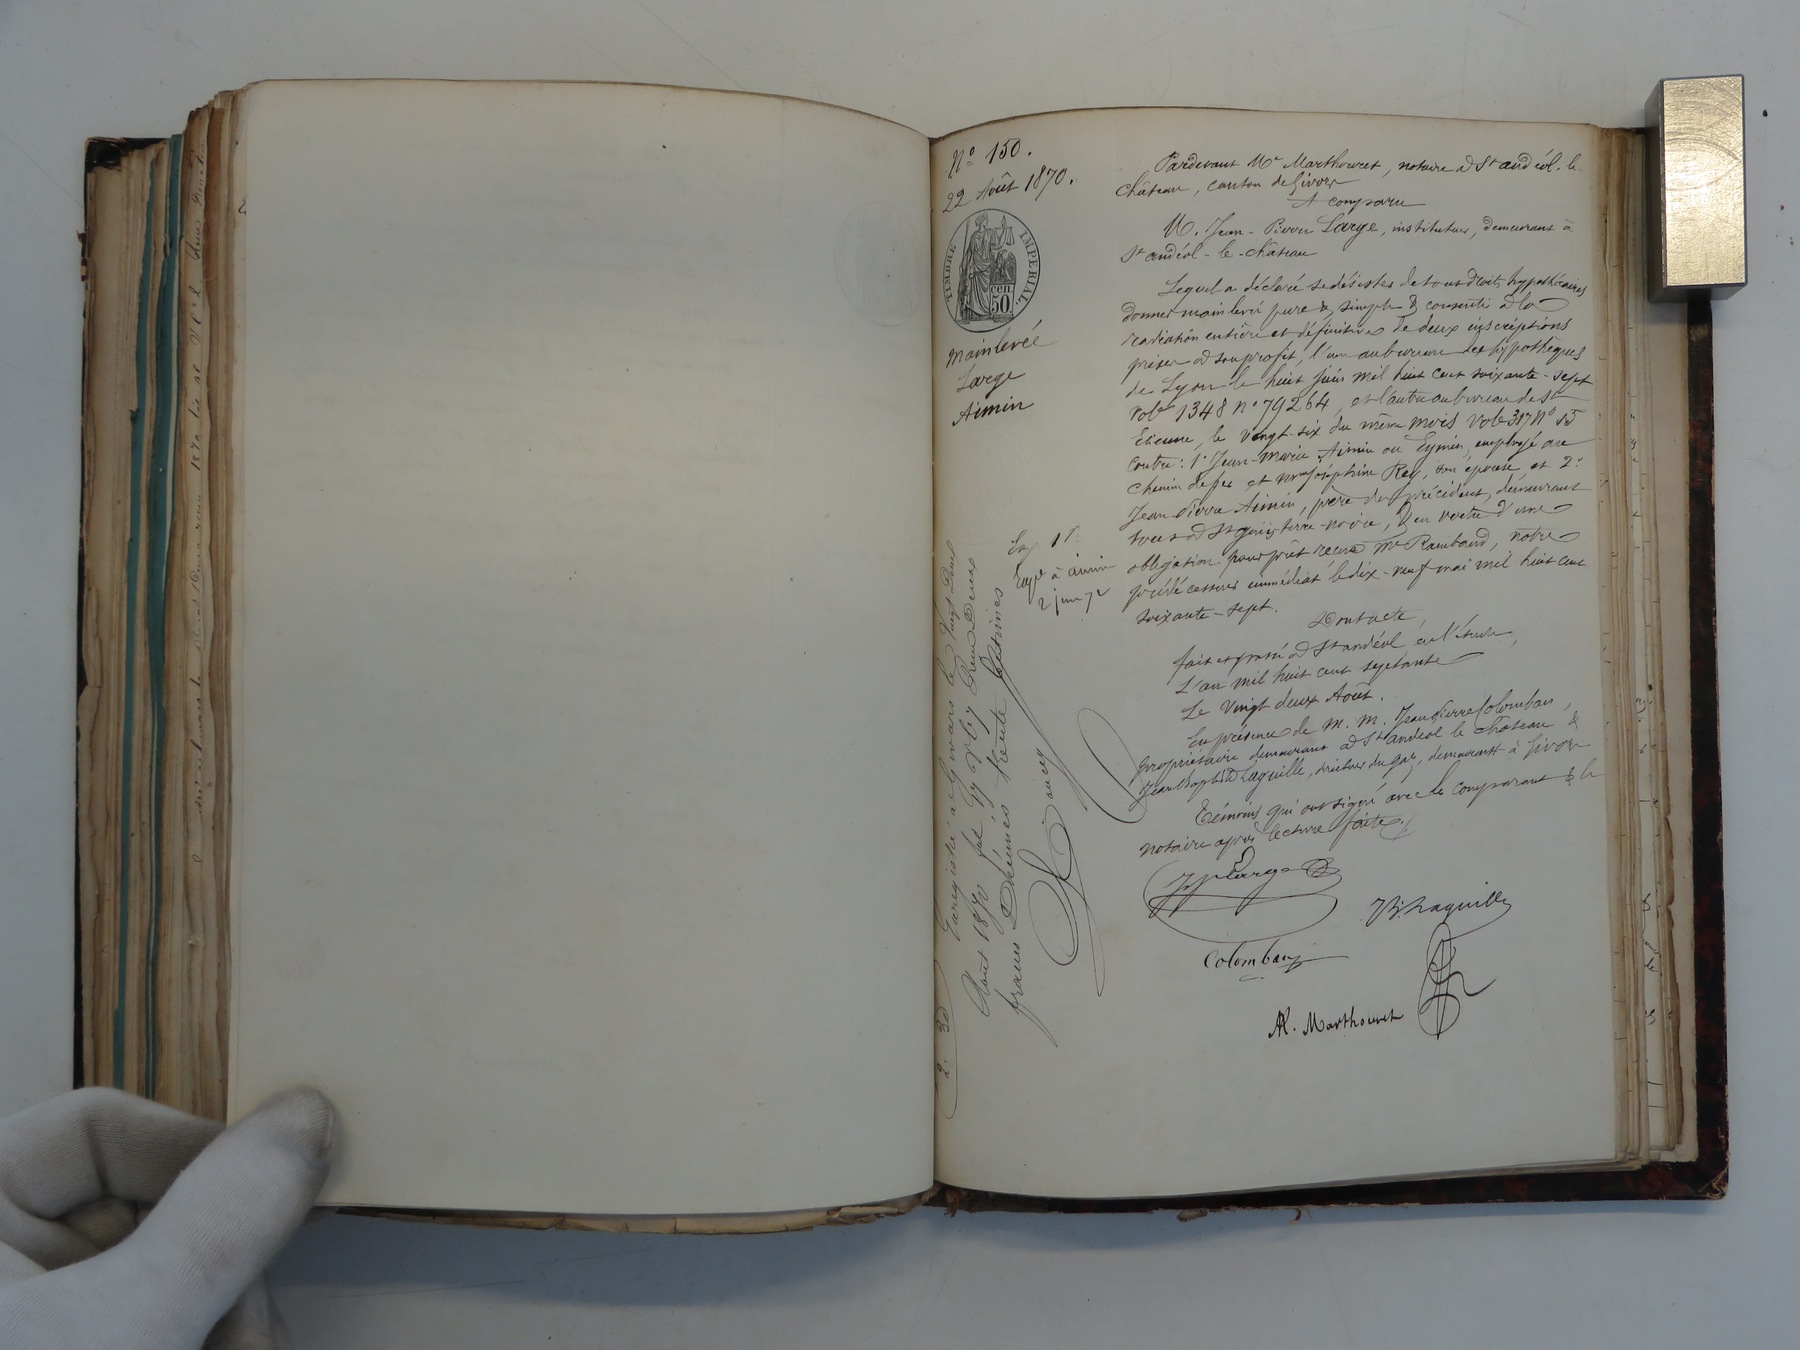 N° 150.
22 Août 1870.
TIMBRE IMPERIAL
cen.
50
Mainlevée
Large
Aimin
Pardevant Me Marthouret, notaire à St andéol-le-
Château, canton de Givors
A comparu
M. Jean-Pierre Large, instituteur, demeurant à
St andéol-le-Château
Lequel a déclaré se désister de tous droits hypothécaires
donner main levée pure & simple & consentir à la
radiation entière et définitive de deux inscriptions
prises à son profit, l'une au bureau des hypothèques
de Lyon le huit juin mil huit cent soixante-sept
Vole 1348 n° 79264, et l'autre au bureau de St
Etienne, le vingt-six du même mois Vole 317 N° 15
Contre: 1° Jean-Marie Aimin ou Eymin, employé au
Chemin de fer et Josephine Rey, son épouse, et 2°
Jean Pierre Aimin, père du précédent, demeurant
tous à St genis terre-noire, & en vertu d'une
obligation pour prêt recue Me Rambaud, notre
prédécesseur immédiat le dix-neuf mai mil huit cent
soixante-sept.
Dont acte,
fait et passé à St andéol en l'étude,
L'an mil huit cent septante
Le vingt deux Août.
En présence de M. M. Jean Pierre Colomban,
propriétaire demeurant à St andéol le château &
Jean Baptiste Laquille, directeur du gaz, demeurant à Givors
Témoins qui ont signé avec le comparant & le
notaire après lecture faite.
JP Large
JB Laquille
Colomban
A. Marthouret
Exp
à aimin
2 juin 72
Enregistré à Givors le vingt neuf
Aout 1870 fol 97 Deux
francs Décimes trente centimes
2. 30